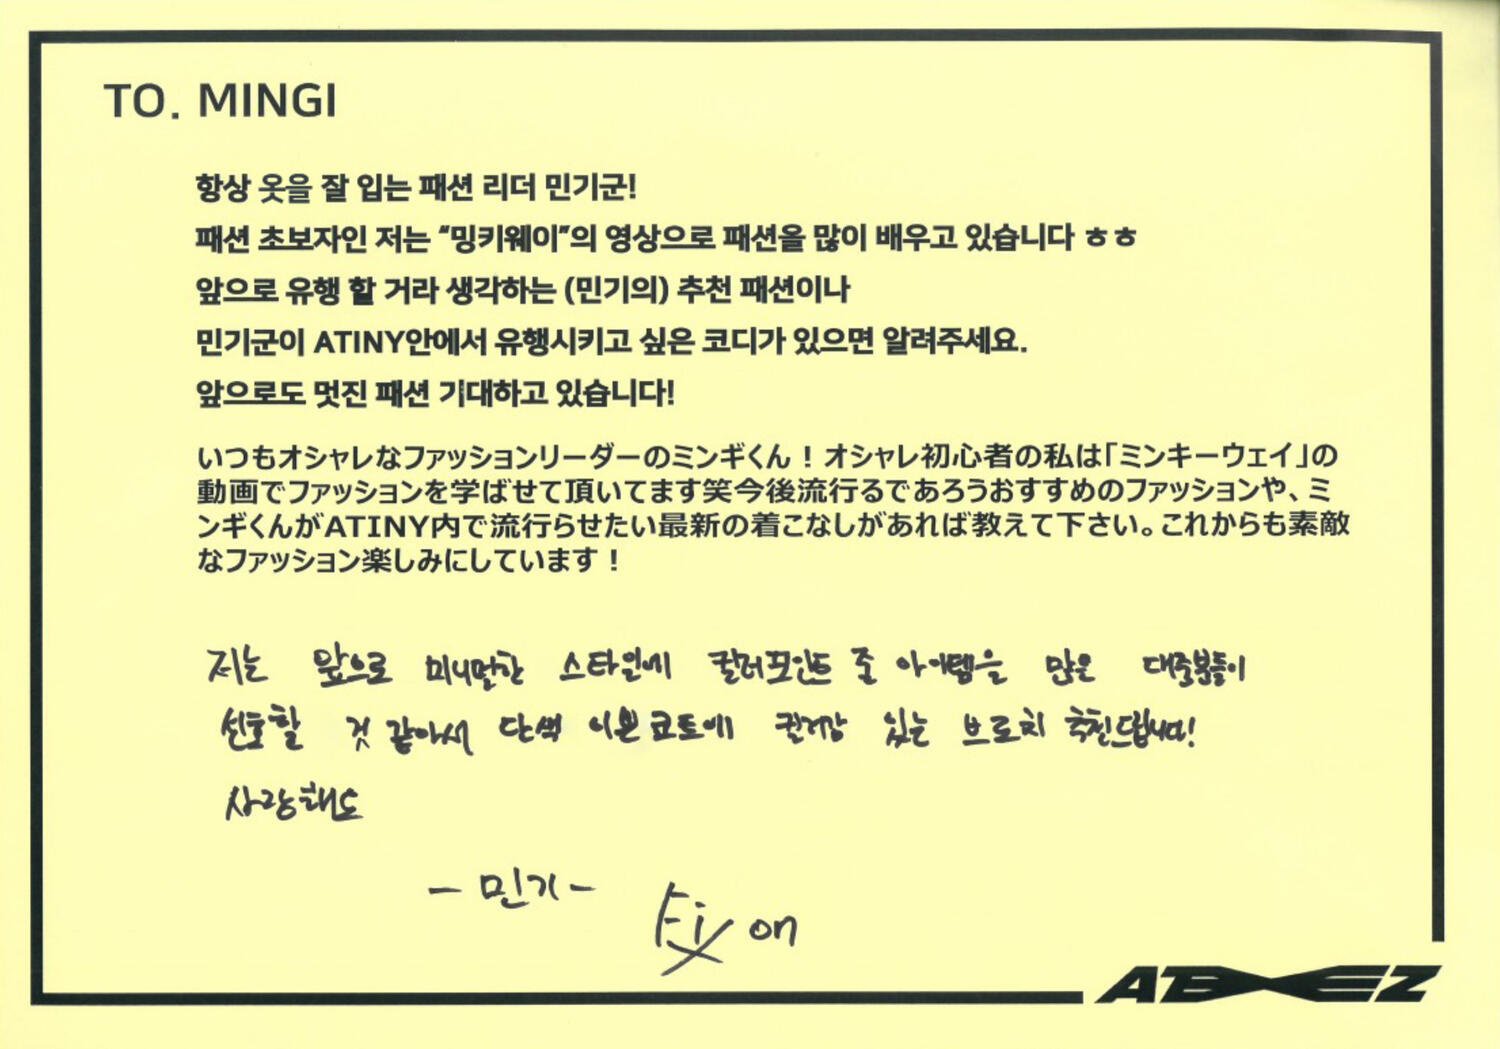 TO. MINGI
항상 옷을 잘 입는 패션 리더 민기군!
패션 초보자인 저는 “밍키웨이”의 영상으로 패션을 많이 배우고 있습니다 ㅎㅎ
앞으로 유행 할 거라 생각하는 (민기의) 추천 패션이나
민기군이 ATINY안에서 유행시키고 싶은 코디가 있으면 알려주세요.
앞으로도 멋진 패션 기대하고 있습니다!
いつもオシャレなファッションリーダーのミンギくん！オシャレ初心者の私は「ミンキーウェイ」の
動画でファッションを学ばせて頂いてます笑今後流行るであろうおすすめのファッションや、ミ
ンギくんがATINY内で流行らせたい最新の着こなしがあれば教えて下さい。これからも素敵
なファッション楽しみにしています！
저는 앞으로 미니멀한 스타일에 컬러포인트 줄 아이템을 많은 대중분들이
선호할 것 같아서 단색 이쁜 코트에 컬러감 있는 브로치 추천드립니다!
사랑해요
- 민기 -
Fix on
ATEEZ